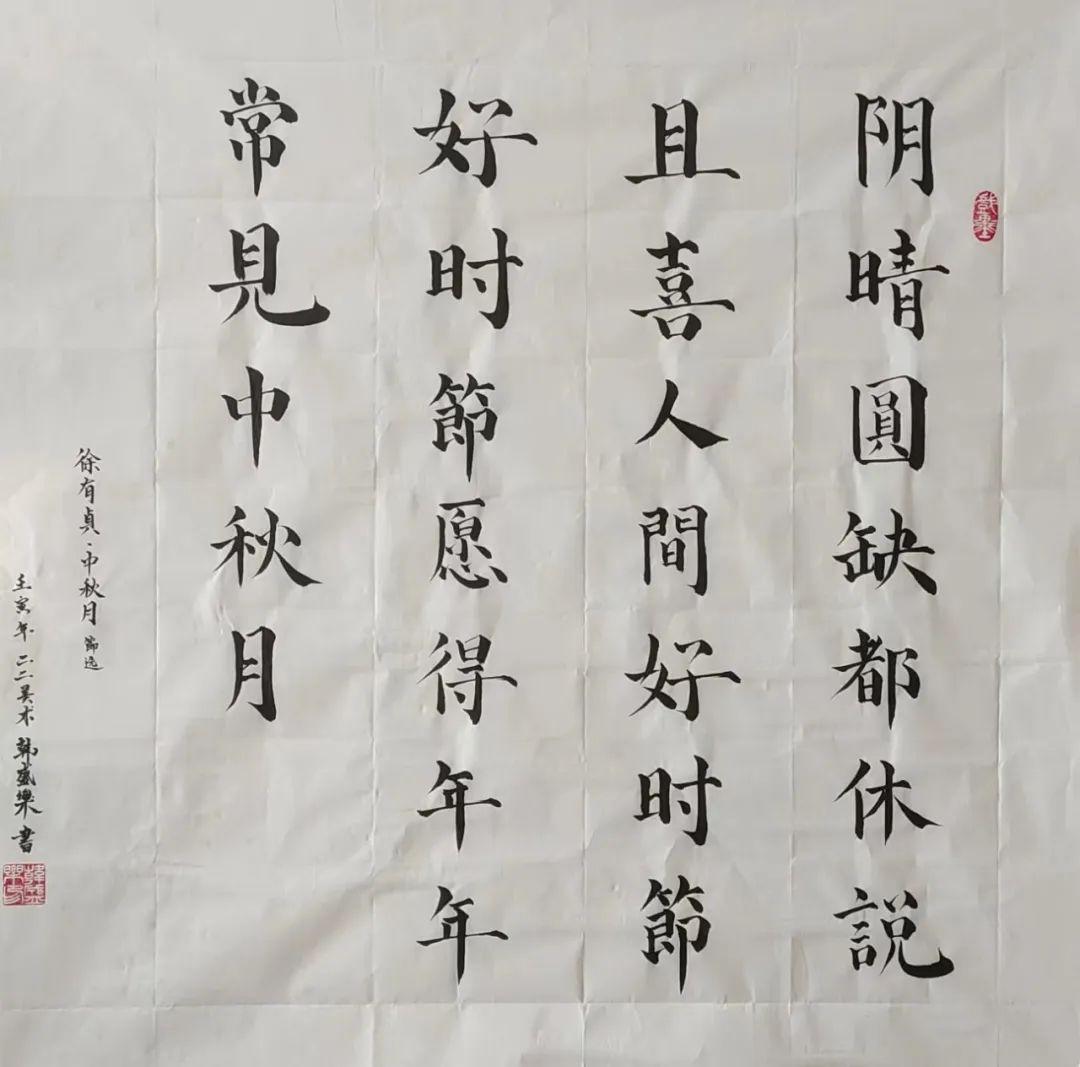 阴晴圓缺都休説
且喜人間好时節
好时節愿得年年
常見中秋月
徐有貞·中秋月 節选
壬寅年 二二美术 韩盛樂 書